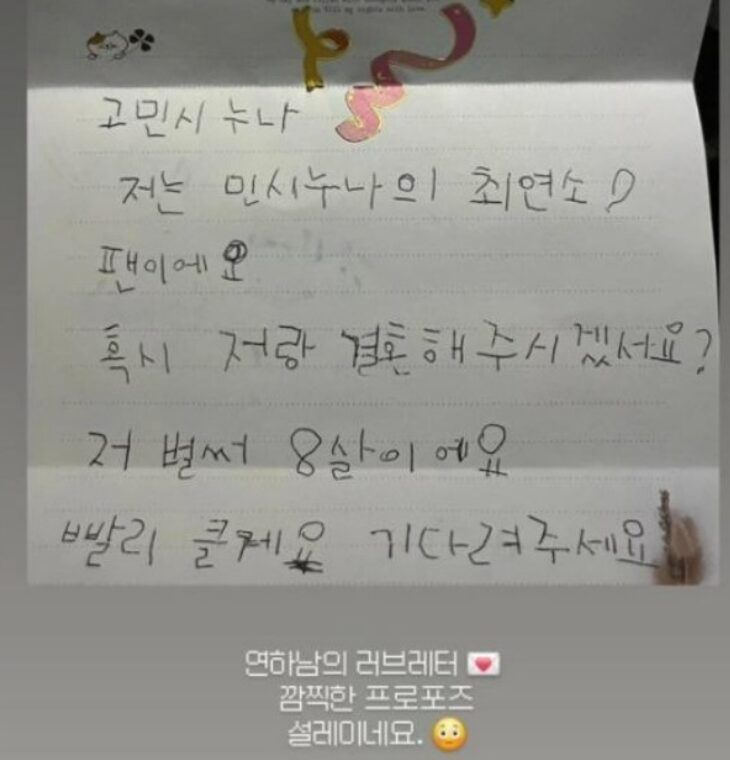 고민시 누나
저는 민시누나의 최연소
팬이에요
혹시 저랑 결혼해주시겠서요?
저 벌써 8살이에요
빨리 클께요 기다려주세요
연하남의 러브레터 💌
깜찍한 프로포즈
설레이네요. 😳